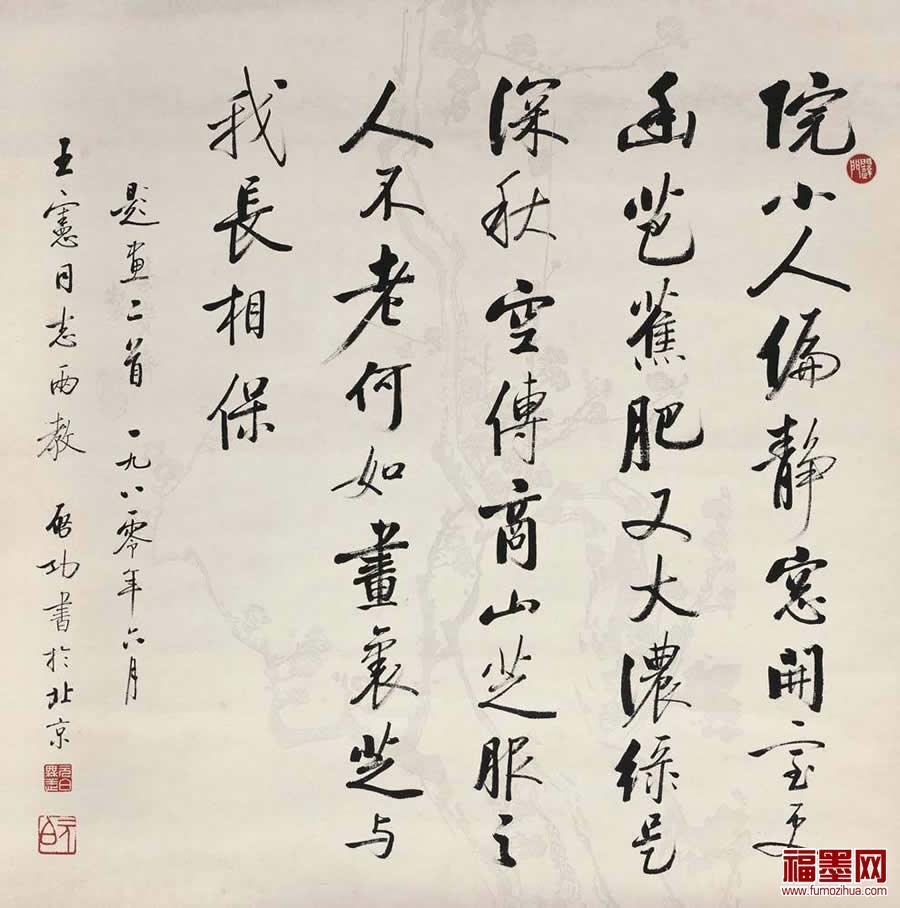 院小人偏静窓開室更
幽芭蕉肥又大濃綠是
深秋空傳商山芝服之
人不老何如畫裏芝與
我長相保
題畫二首 一九八零年六月
王憲同志兩教 启功書於北京
福墨网
www.fumozihua.com